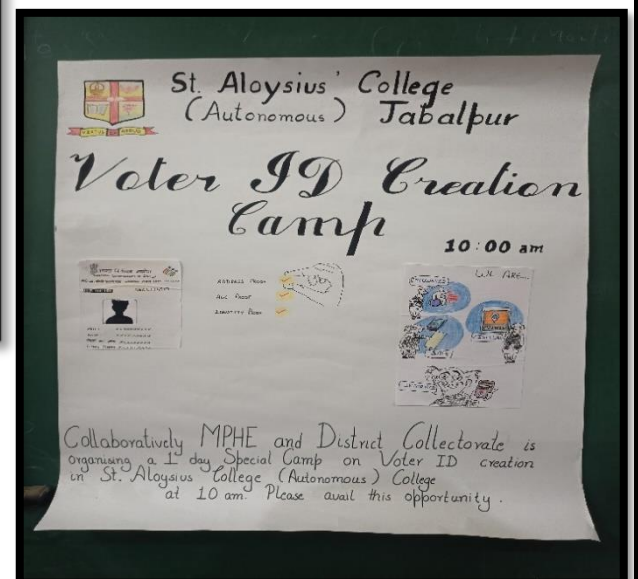 St. Aloysius' College
(Autonomous) Jabalpur
Voter ID Creation
Camp
10:00 am
ADDRESS PROOF
AGE PROOF
IDENTITY PROOF
Collaboratively MPHE and District Collectorate is
organising a 1 day Special Camp on Voter ID creation
in St. Aloysius College (Autonomous) College
at 10 am. Please avail this opportunity.